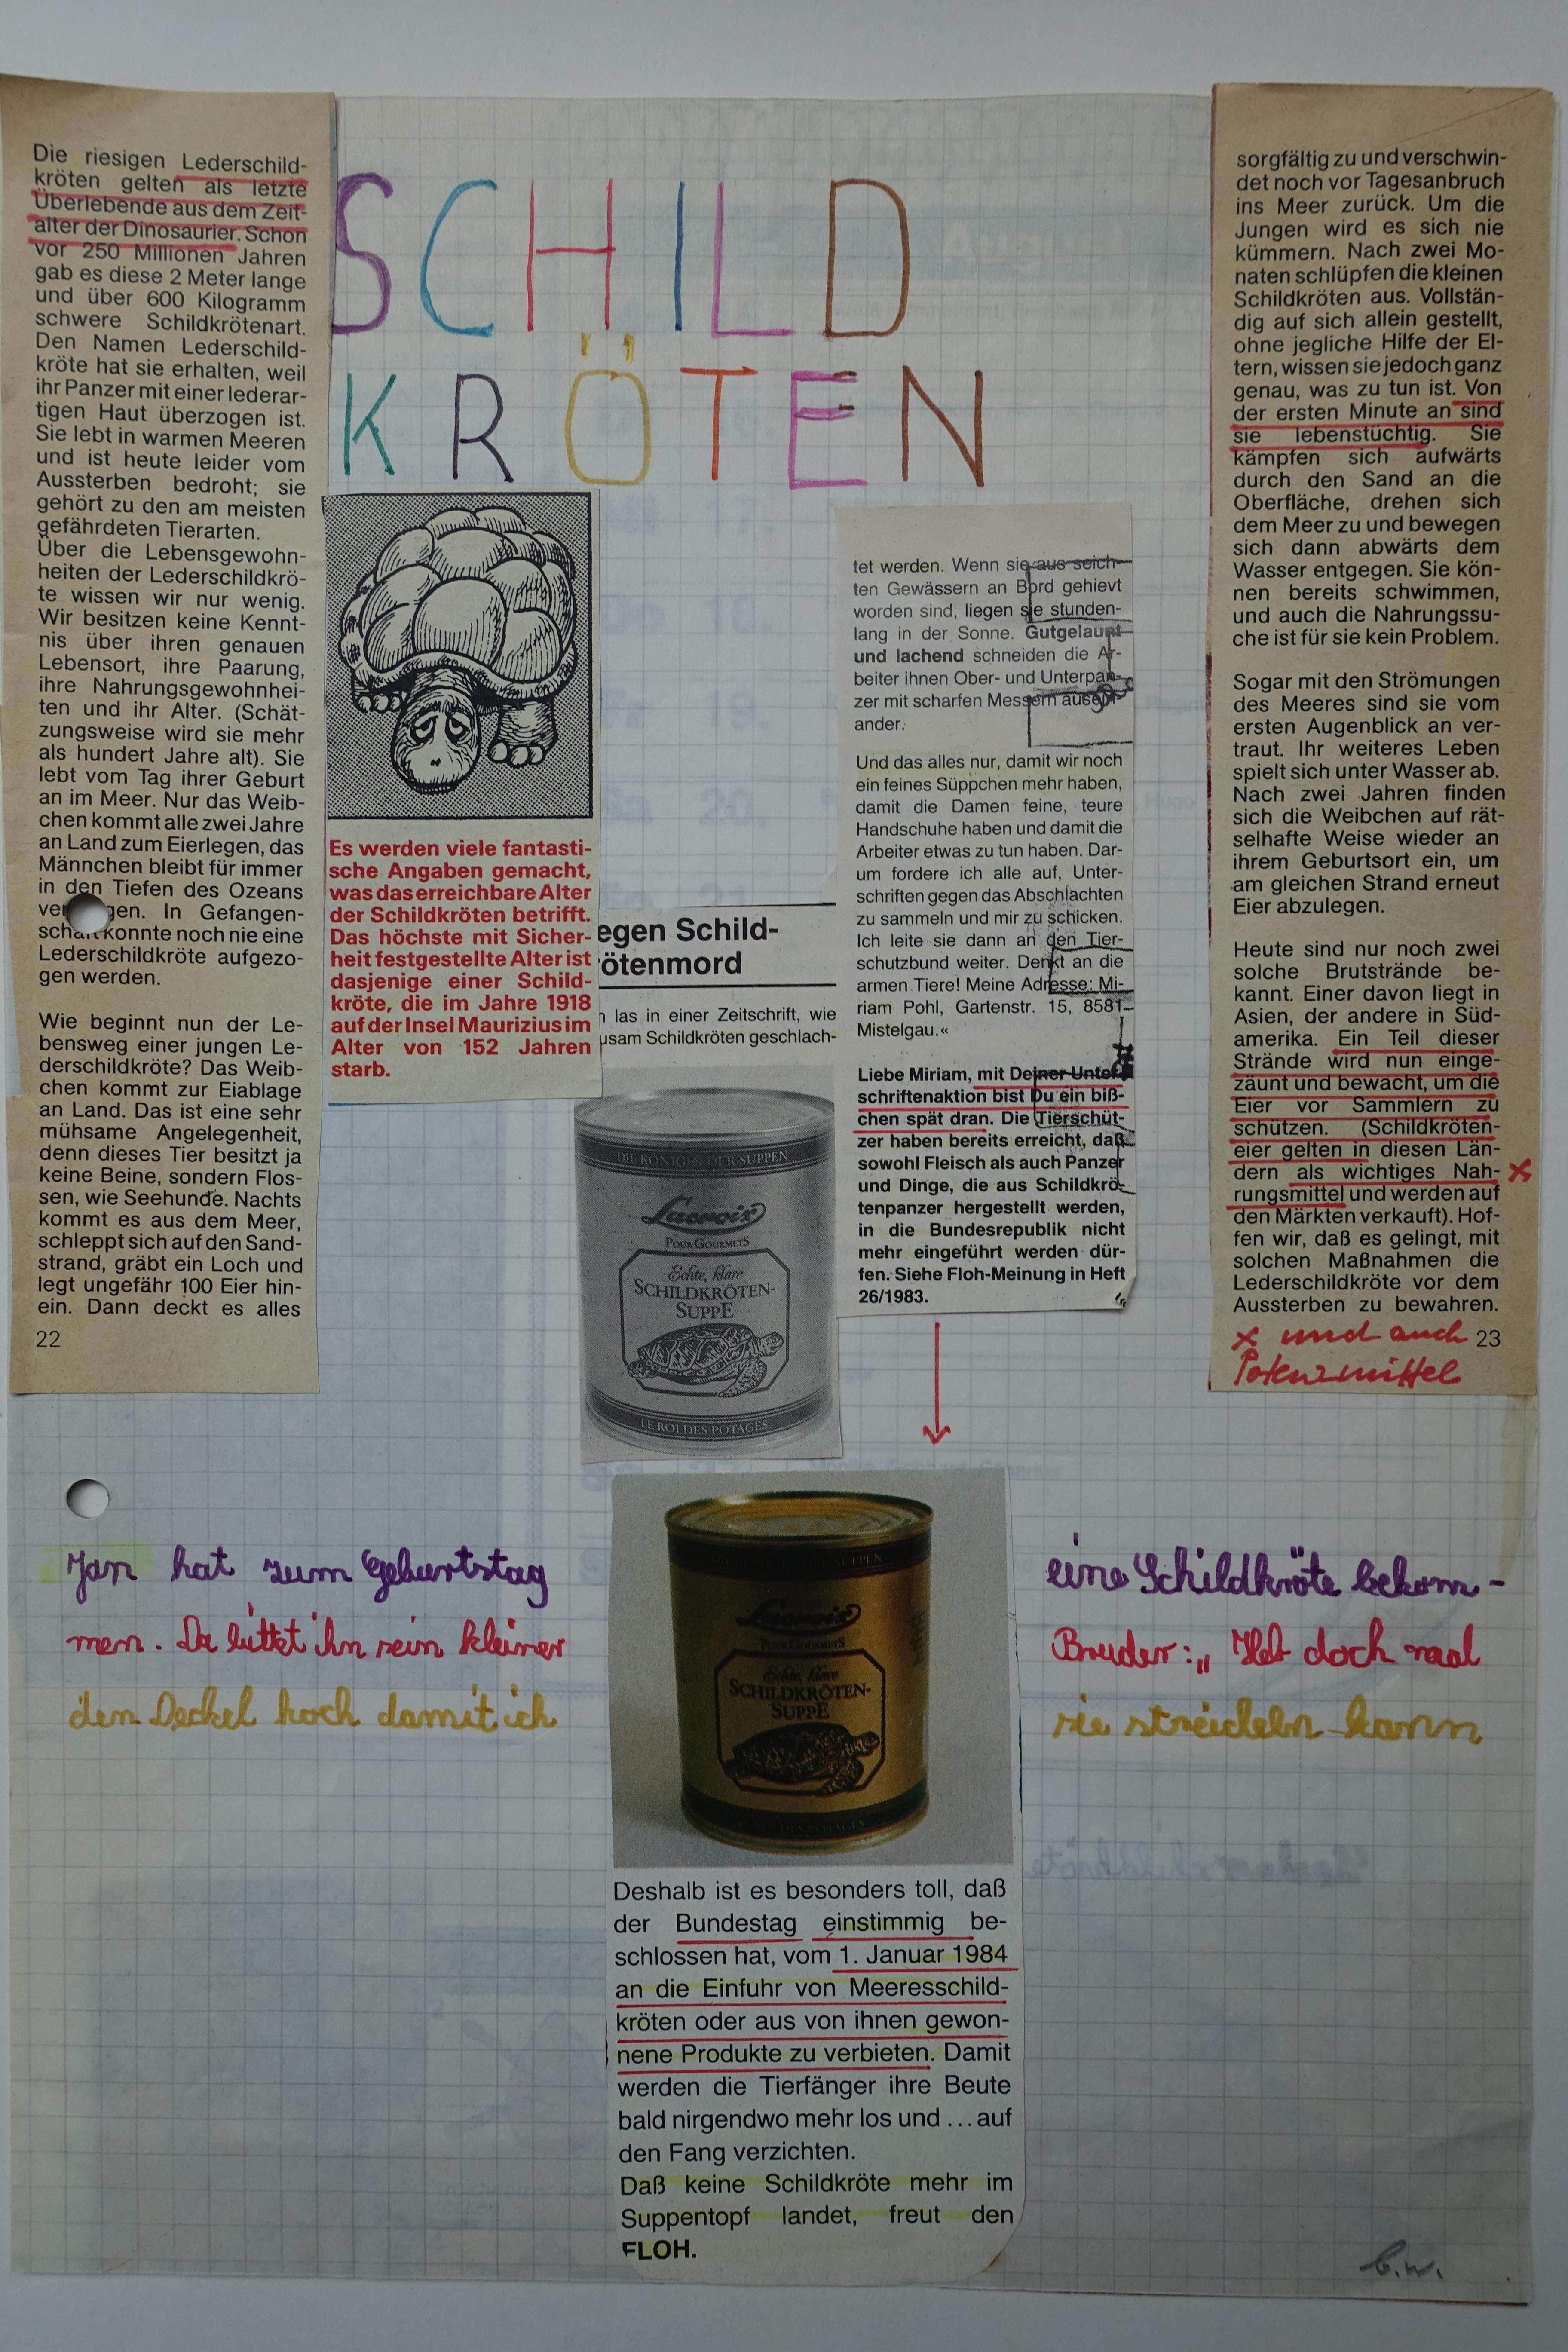 SCHILD
KRÖTEN
Die riesigen Lederschild-
kröten gelten als letzte
Überlebende aus dem Zeit-
alter der Dinosaurier. Schon
vor 250 Millionen Jahren
gab es diese 2 Meter lange
und über 600 Kilogramm
schwere Schildkrötenart.
Den Namen Lederschild-
kröte hat sie erhalten, weil
ihr Panzer mit einer lederar-
tigen Haut überzogen ist.
Sie lebt in warmen Meeren
und ist heute leider vom
Aussterben bedroht; sie
gehört zu den am meisten
gefährdeten Tierarten.
Über die Lebensgewohn-
heiten der Lederschildkrö-
te wissen wir nur wenig.
Wir besitzen keine Kennt-
nis über ihren genauen
Lebensort, ihre Paarung,
ihre Nahrungsgewohnhei-
ten und ihr Alter. (Schät-
zungsweise wird sie mehr
als hundert Jahre alt). Sie
lebt vom Tag ihrer Geburt
an im Meer. Nur das Weib-
chen kommt alle zwei Jahre
an Land zum Eierlegen, das
Männchen bleibt für immer
in den Tiefen des Ozeans
ver gen. In Gefangen-
schaft konnte noch nie eine
Lederschildkröte aufgezo-
gen werden.
Wie beginnt nun der Le-
bensweg einer jungen Le-
derschildkröte? Das Weib-
chen kommt zur Eiablage
an Land. Das ist eine sehr
mühsame Angelegenheit,
denn dieses Tier besitzt ja
keine Beine, sondern Flos-
sen, wie Seehunde. Nachts
kommt es aus dem Meer,
schleppt sich auf den Sand-
strand, gräbt ein Loch und
legt ungefähr 100 Eier hin-
ein. Dann deckt es alles
22
Es werden viele fantasti-
sche Angaben gemacht,
was das erreichbare Alter
der Schildkröten betrifft.
Das höchste mit Sicher-
heit festgestellte Alter ist
dasjenige einer Schild-
kröte, die im Jahre 1918
auf der Insel Maurizius im
Alter von 152 Jahren
starb.
egen Schild-
ötenmord
h las in einer Zeitschrift, wie
usam Schildkröten geschlach-
DIE KÖNIGIN DER SUPPEN
Lacroix
POUR GOURMETS
Echte, klare
SCHILDKRÖTEN-
SUPPE
LE ROI DES POTAGES
tet werden. Wenn sie aus seich-
ten Gewässern an Bord gehievt
worden sind, liegen sie stunden-
lang in der Sonne. Gutgelaunt
und lachend schneiden die Ar-
beiter ihnen Ober- und Unterpan-
zer mit scharfen Messern ausein-
ander.
Und das alles nur, damit wir noch
ein feines Süppchen mehr haben,
damit die Damen feine, teure
Handschuhe haben und damit die
Arbeiter etwas zu tun haben. Dar-
um fordere ich alle auf, Unter-
schriften gegen das Abschlachten
zu sammeln und mir zu schicken.
Ich leite sie dann an den Tier-
schutzbund weiter. Denkt an die
armen Tiere! Meine Adresse: Mi-
riam Pohl, Gartenstr. 15, 8581
Mistelgau.«
Liebe Miriam, mit Deiner Unter-
schriftenaktion bist Du ein biß-
chen spät dran. Die Tierschüt-
zer haben bereits erreicht, daß
sowohl Fleisch als auch Panzer
und Dinge, die aus Schildkrö-
tenpanzer hergestellt werden,
in die Bundesrepublik nicht
mehr eingeführt werden dür-
fen. Siehe Floh-Meinung in Heft
26/1983.
sorgfältig zu und verschwin-
det noch vor Tagesanbruch
ins Meer zurück. Um die
Jungen wird es sich nie
kümmern. Nach zwei Mo-
naten schlüpfen die kleinen
Schildkröten aus. Vollstän-
dig auf sich allein gestellt,
ohne jegliche Hilfe der El-
tern, wissen sie jedoch ganz
genau, was zu tun ist. Von
der ersten Minute an sind
sie lebenstüchtig. Sie
kämpfen sich aufwärts
durch den Sand an die
Oberfläche, drehen sich
dem Meer zu und bewegen
sich dann abwärts dem
Wasser entgegen. Sie kön-
nen bereits schwimmen,
und auch die Nahrungssu-
che ist für sie kein Problem.
Sogar mit den Strömungen
des Meeres sind sie vom
ersten Augenblick an ver-
traut. Ihr weiteres Leben
spielt sich unter Wasser ab.
Nach zwei Jahren finden
sich die Weibchen auf rät-
selhafte Weise wieder an
ihrem Geburtsort ein, um
am gleichen Strand erneut
Eier abzulegen.
Heute sind nur noch zwei
solche Brutstrände be-
kannt. Einer davon liegt in
Asien, der andere in Süd-
amerika. Ein Teil dieser
Strände wird nun einge-
zäunt und bewacht, um die
Eier vor Sammlern zu
schützen. (Schildkröten-
eier gelten in diesen Län-
dern als wichtiges Nah- x
rungsmittel und werden auf
den Märkten verkauft). Hof-
fen wir, daß es gelingt, mit
solchen Maßnahmen die
Lederschildkröte vor dem
Aussterben zu bewahren.
x und auch
Potenzmittel
23
Jan hat zum Geburtstag eine Schildkröte bekom-
men. Da bittet ihn sein kleiner Bruder: „ Heb doch mal
den Deckel hoch damit ich sie streicheln kann
Lacroix
POUR GOURMETS
Echte, klare
SCHILDKRÖTEN-
SUPPE
Deshalb ist es besonders toll, daß
der Bundestag einstimmig be-
schlossen hat, vom 1. Januar 1984
an die Einfuhr von Meeresschild-
kröten oder aus von ihnen gewon-
nene Produkte zu verbieten. Damit
werden die Tierfänger ihre Beute
bald nirgendwo mehr los und ...auf
den Fang verzichten.
Daß keine Schildkröte mehr im
Suppentopf landet, freut den
FLOH.
b.w.